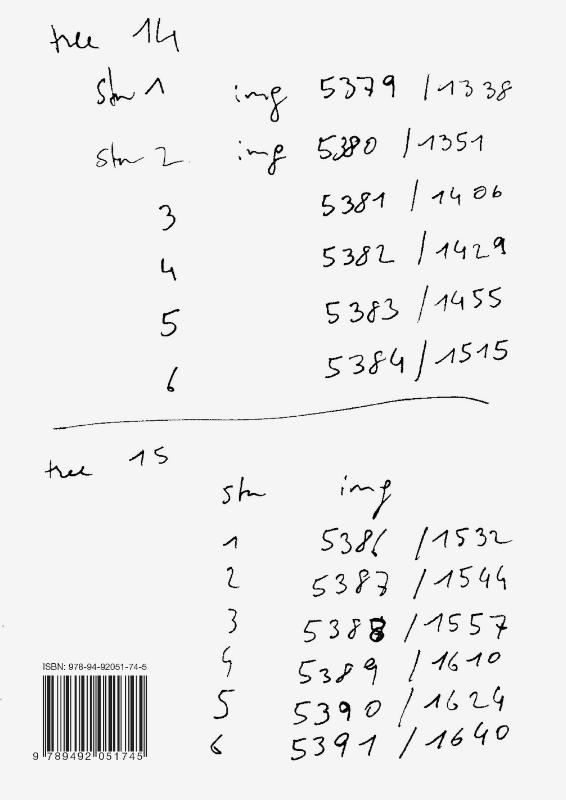 tree 14
stn 1 img 5379 / 1338
stn 2. img 5380 / 1351
3 5381 / 1406
4 5382 / 1429
5 5383 / 1455
6 5384 / 1515
tree 15
stn img
1 5386 / 1532
2 5387 / 1544
3 5388 / 1557
4 5389 / 1610
5 5390 / 1624
6 5391 / 1640
ISBN: 978-94-92051-74-5
9 789492 051745